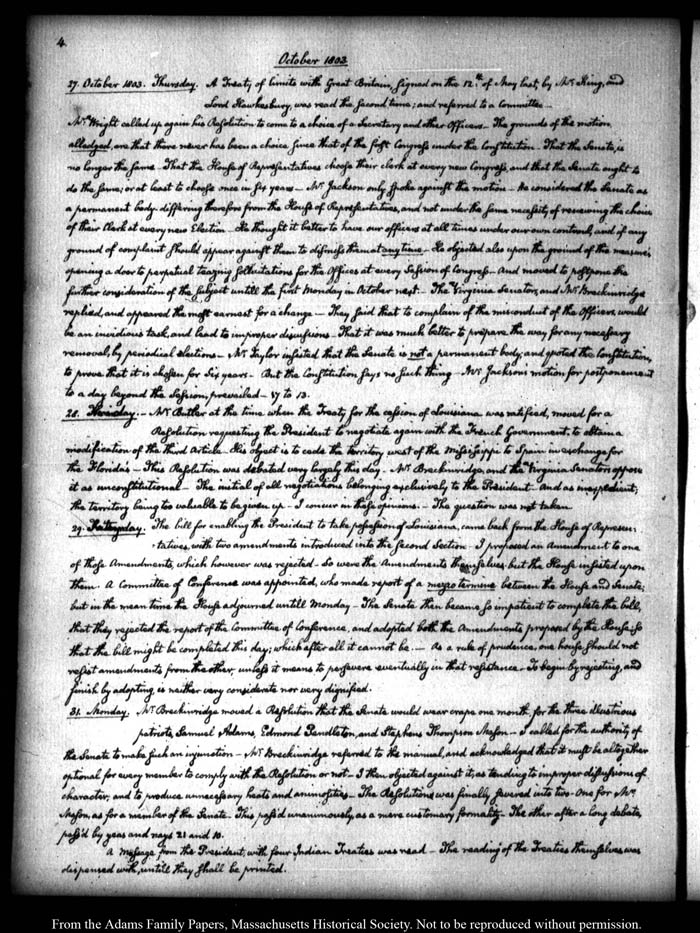 4
October 1803
27. October 1803. Thursday. A Treaty of limits with Great Britain, signed on the 12th. of May last, by Mr. King, and
Lord Hawkesbury, was read the second time; and referred to a Committee—
Mr. Wright called up again his Resolution to come to a choice of a Secretary and other Officers— The grounds of the motion
alledged, are that there never has been a choice since that of the first Congress under the Constitution— That the Senate, is
no longer the same— That the House of Representatives choose their clerk at every new Congress, and that the Senate ought to
do the same; or at least to choose once in six years— Mr. Jackson only spoke against the motion— He considered the Senate as
a permanent body. differing therefore from the House of Representatives, and not under the same necessity of renewing the choice
of their Clerk at every new Election— He thought it better to have our officers at all times under our own controul, and if any
ground of complaint should appear against them to dismiss them at any time— He objected also upon the ground of the measure's
opening a door to perpetual teazing sollicitations for the Offices at every Session of Congress— And moved to postpone the
further consideration of the subject untill the first Monday in October next— The Virginia Senators, and Mr. Breckinridge
replied, and appeared the most earnest for a change— They said that to complain of the misconduct of the Officers, would
be an invidious task, and lead to improper discussions— That it was much better to prepare the way for any necessary
removal, by periodial elections— Mr. Taylor insisted that the Senate is not a permanent body; and quoted the Constitution,
to prove that it is chosen for six years— But the Constitution says no such thing— Mr. Jackson's motion for postponement
to a day beyond the Session, prevailed— 17 to 13.
28. — Mr. Butler at the time when the Treaty for the cession of Louisiana was ratified, moved for a
Resolution requesting the President to negotiate again with the French Government, to obtain a
modification of the third Article— His object is to cede the territory west of the Mississippi to Spain in exchange for
the Florida's— This Resolution was debated very largely this day— Mr. Breckinridge, and the Virginia Senators oppose
it as unconstitutional— The initial of all negotiations belonging exclusively to the President— And as inexpedient;
the territory being too valuable to be given up— I concur in these opinions— The question was not taken
29. The bill for enabling the President to take possession of Louisiana, came back from the House of Represen:
:tatives, with two amendments introduced into the second Section— I proposed an Amendment to one
of those Amendments, which however was rejected— So were the Amendments themselves but the House insisted upon
them. A Committee of Conference was appointed, who made report of a mezzo termine between the House and Senate;
but in the mean time the House adjourned untill Monday— The Senate then became so impatient to complete the bill,
that they rejected the report of the Committee of Conference, and adopted both the Amendments proposed by the House; so
that the bill might be completed this day; which after all it cannot be— As a rule of prudence, one house should not
resist amendments from the other, unless it means to persevere eventually in that resistance— To begin by rejecting, and
finish by adopting, is neither very considerate nor very dignified.
31. Monday. Mr. Breckinridge moved a Resolution that the Senate would wear crape one month, for the three illustrious
patriots, Samuel Adams, Edmond Pendleton, and Stephens Thompson Mason— I called for the authority of
the Senate to make such an injunction— Mr. Breckinridge referred to the manual, and acknowledged that it must be altogether
optional for every member to comply with the Resolution or not— I then objected against it, as tending to improper discussions of
character, and to produce unnecessary heats and animosities— The Resolution was finally severed into two— One for Mr.
Mason, as for a member of the Senate— This pass'd unanimously, as a mere customary formality— The other after a long debate,
pass'd by yeas and nays 21 and 10.
A Message from the President, with four Indian Treaties was read— The reading of the Treaties themselves was
dispensed with, untill they shall be printed.
From the Adams Family Papers, Massachusetts Historical Society. Not to be reproduced without permission.